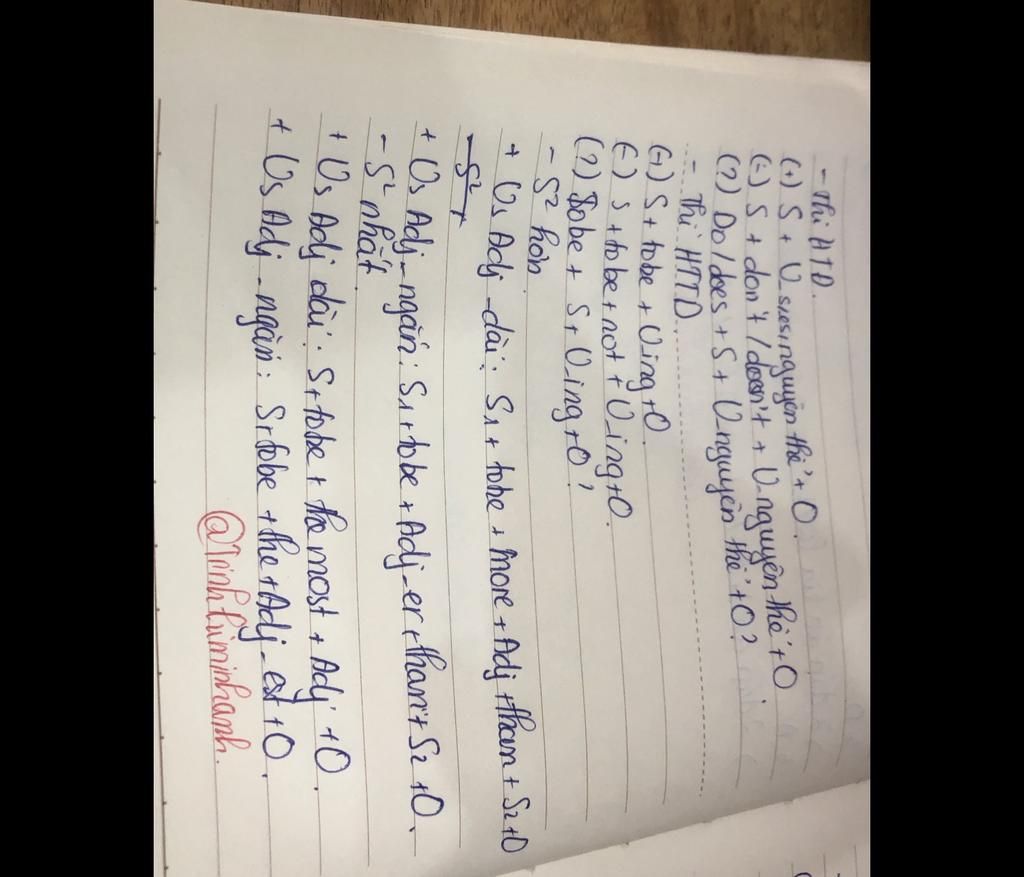 - Thì HTD.
(+) S + V_s/es/nguyên thể + O.
(-) S + don't / doesn't + V_nguyên thể + O
(?) Do / does + S + V_nguyên thể + O?
- Thì HTTD
(+) S + tobe + V_ing + O.
(-) S + tobe + not + V_ing + O.
(?) Tobe + S + V_ing + O?
- S² hơn
+ Vs Adj_dài: S1 + tobe + more + Adj + than + S2 + O
- S² +
+ Vs Adj_ngắn: S1 + tobe + Adj_er + than + S2 + O.
- S² nhất
+ Vs Adj dài: S + tobe + the most + Adj + O.
+ Vs Adj_ngắn: S + tobe + the + Adj_est + O.
@Trinhtuminhanh.